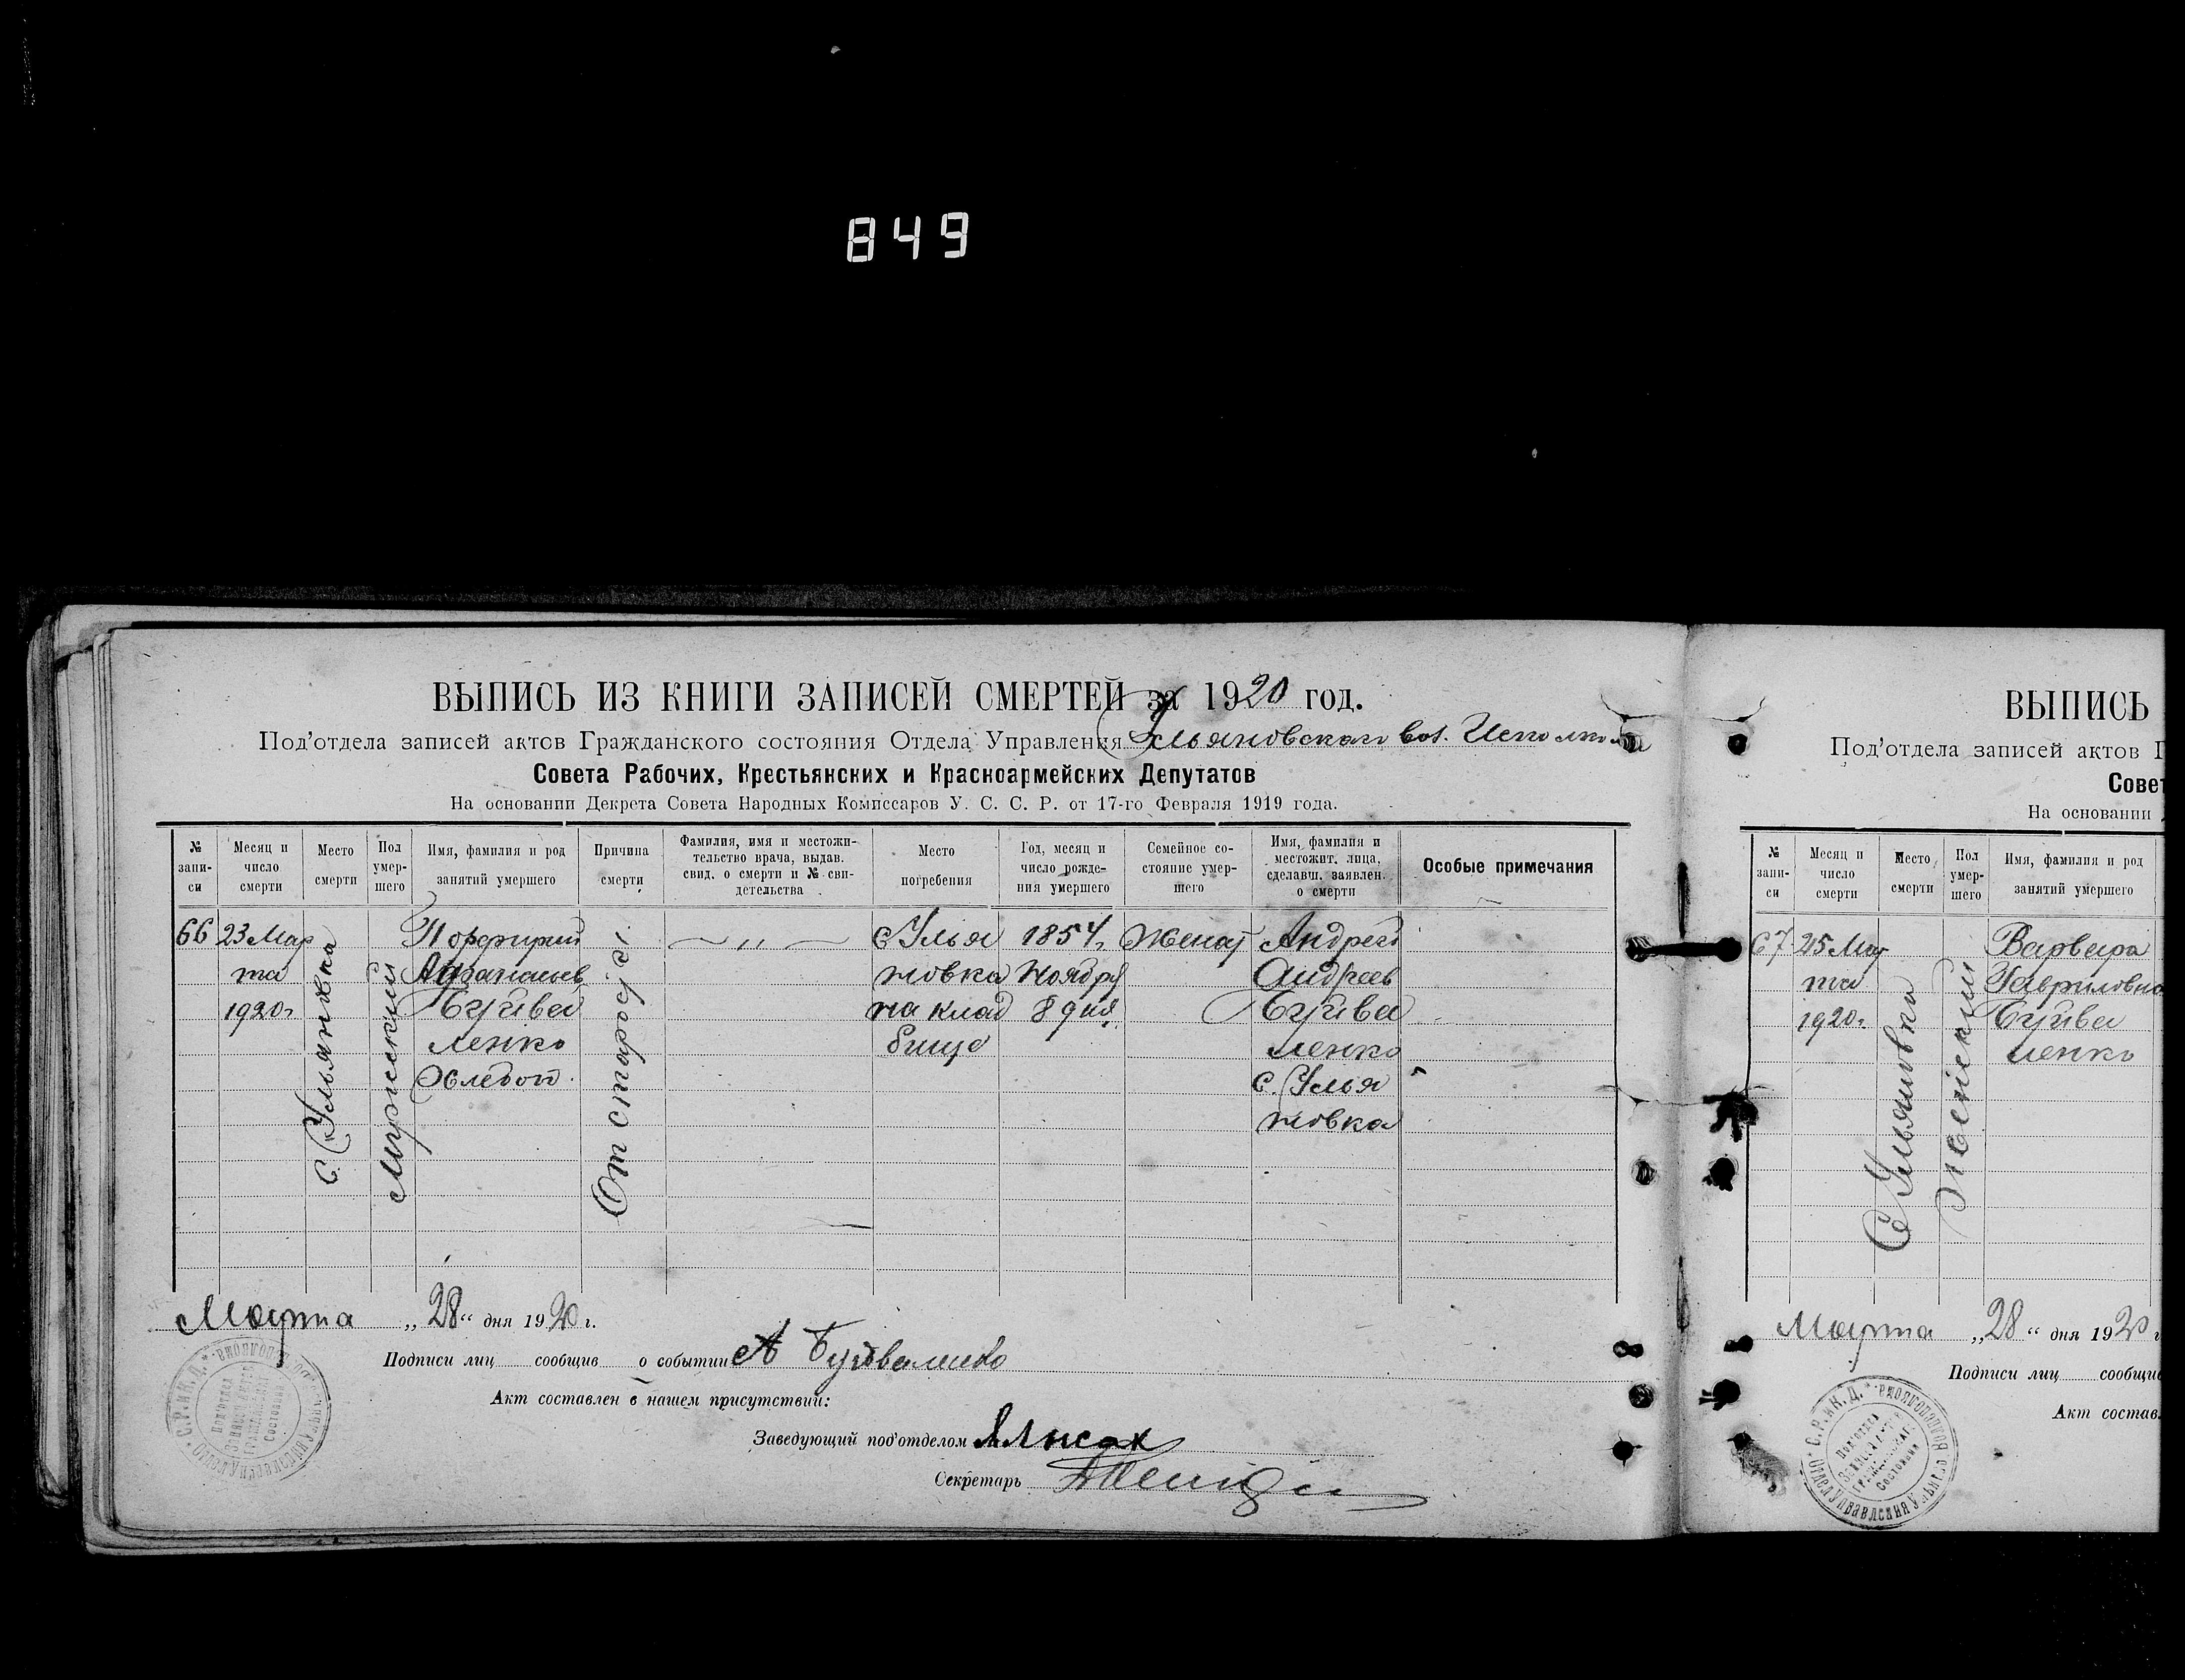 849
ВЫПИСЬ ИЗ КНИГИ ЗАПИСЕЙ СМЕРТЕЙ за 1920 год.
Под'отдела записей актов Гражданского состояния Отдела Управления Ульяновскаго вол. Исполком
Совета Рабочих, Крестьянских и Красноармейских Депутатов
На основании Декрета Совета Народных Комиссаров У. С. С. Р. от 17-го Февраля 1919 года.
№ запи-си
Месяц и число смерти
Место смерти
Пол умер-шего
Имя, фамилия и род занятий умершего
Причина смерти
Фамилия, имя и местожи-тельство врача, выдав. свид. о смерти и № сви-детельства
Место погребения
Год, месяц и число рожде-ния умершего
Семейное со-стояние умер-шего
Имя, фамилия и местожит. лица, сделавш. заявлен. о смерти
Особые примечания
66
23 Мар
та
1920 г
с. Ульяновка
Мужеский
Порфирий
Афанасьев
Буйва
ленко
Хлебоп.
От старости
— „ —
с Улья
новка
на клад
бище
1854 г
Ноября
8 дня
Женат
Андрей
Андреев
Буйва
ленко
с. Улья
новка
Марта „28“ дня 1920 г.
Подписи лиц сообщив о событии А Буйваленко
Акт составлен в нашем присутствии:
Заведующий под'отделом Лысак
Секретарь
ВЫПИСЬ
Под'отдела записей актов Г
Совет
На основании
№ запи-си
Месяц и число смерти
Место смерти
Пол умер-шего
Имя, фамилия и род занятий умершего
67
25 Мар
та
1920 г.
С Ульяновка
Женский
Варвара
Гавриловна
Буйва
ленко
Марта „28“ дня 1920 г
Подписи лиц сообщив
Акт состав